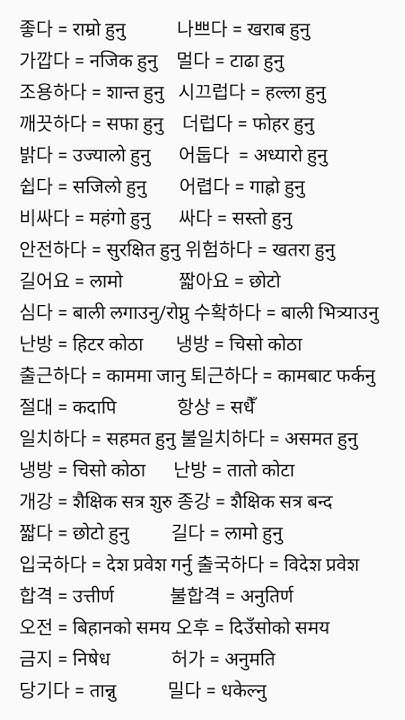 좋다 = राम्रो हुनु 나쁘다 = खराब हुनु
가깝다 = नजिक हुनु 멀다 = टाढा हुनु
조용하다 = शान्त हुनु 시끄럽다 = हल्ला हुनु
깨끗하다 = सफा हुनु 더럽다 = फोहर हुनु
밝다 = उज्यालो हुनु 어둡다 = अध्यारो हुनु
쉽다 = सजिलो हुनु 어렵다 = गाह्रो हुनु
비싸다 = महंगो हुनु 싸다 = सस्तो हुनु
안전하다 = सुरक्षित हुनु 위험하다 = खतरा हुनु
길어요 = लामो 짧아요 = छोटो
심다 = बाली लगाउनु/रोप्नु 수확하다 = बाली भित्र्याउनु
난방 = हिटर कोठा 냉방 = चिसो कोठा
출근하다 = काममा जानु 퇴근하다 = कामबाट फर्कनु
절대 = कदापि 항상 = सधैँ
일치하다 = सहमत हुनु 불일치하다 = असमत हुनु
냉방 = चिसो कोठा 난방 = तातो कोटा
개강 = शैक्षिक सत्र शुरु 종강 = शैक्षिक सत्र बन्द
짧다 = छोटो हुनु 길다 = लामो हुनु
입국하다 = देश प्रवेश गर्नु 출국하다 = विदेश प्रवेश
합격 = उत्तीर्ण 불합격 = अनुतिर्ण
오전 = बिहानको समय 오후 = दिउँसोको समय
금지 = निषेध 허가 = अनुमति
당기다 = तान्नु 밀다 = धकेल्नु